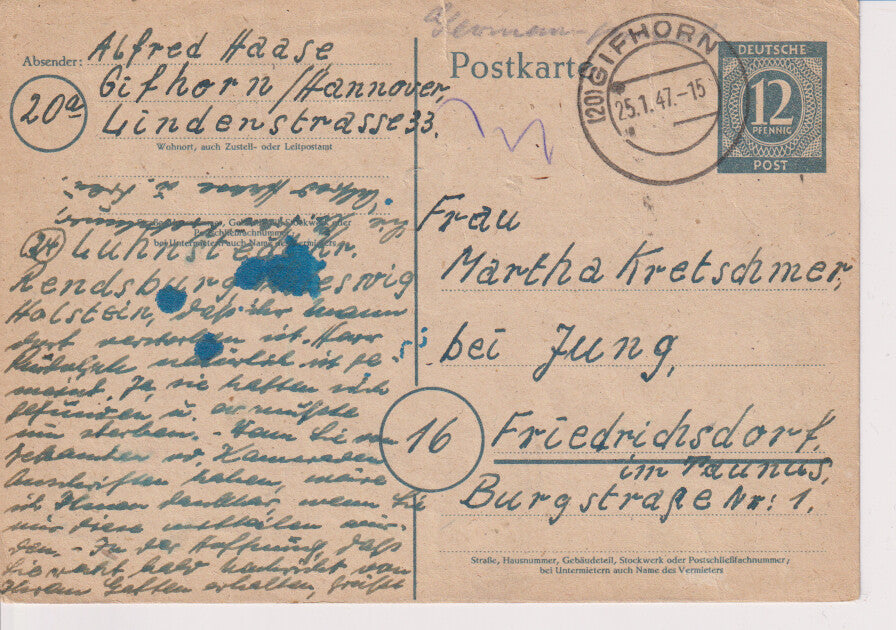 Absender: Alfred Haase
Gifhorn/Hannover,
20a Lindenstrasse 33.
Wohnort, auch Zustell- oder Leitpostamt
Straße, Hausnummer, Gebäudeteil, Stockwerk oder
Postschließfachnummer;
bei Untermietern auch Name des Vermieters
24 Luhnstedt, Kr.
Rendsburg
Holstein, daß ihr Mann
dort verstorben ist. Herr
Rudolph natürlich ist ge-
meint. Ja, sie hatten sich
gefunden u. er mußte
nun sterben. - Wenn Sie von
Bekannten od. Kameraden
Anschriften haben, wäre
ich Ihnen dankbar, wenn Sie
mir diese mitteilen wür-
den. - In der Hoffnung, daß
Sie recht bald Nachricht von
Ihrem Gatten erhalten, grüßt
Postkarte
(20) GIFHORN
25.1.47.-15
DEUTSCHE
12
PFENNIG
POST
Frau
Martha Kretschmer,
bei Jung,
16 Friedrichsdorf,
im Taunus,
Burgstraße Nr: 1.
Straße, Hausnummer, Gebäudeteil, Stockwerk oder Postschließfachnummer;
bei Untermietern auch Name des Vermieters